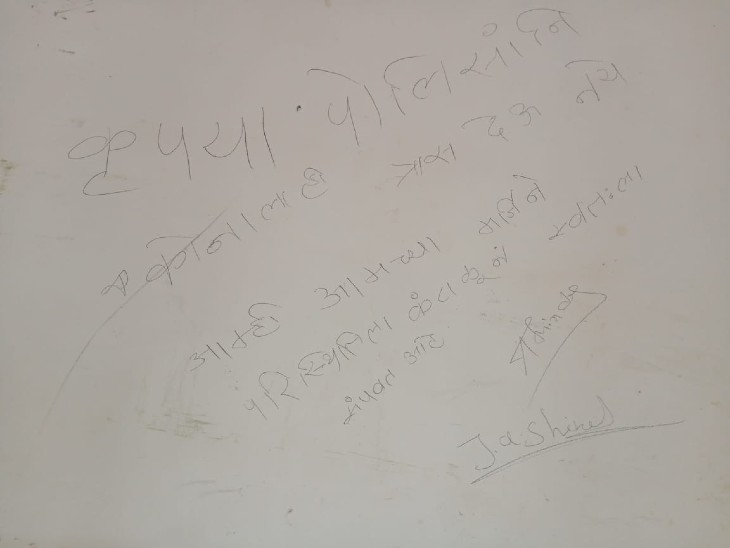 कृपया पोलिसांनि
कोनालाही त्रास देऊ नये
आम्ही आमच्या मर्जिने
परिस्थितिला कंटाळून स्वतःला
संपवत आहे
J.a shinde